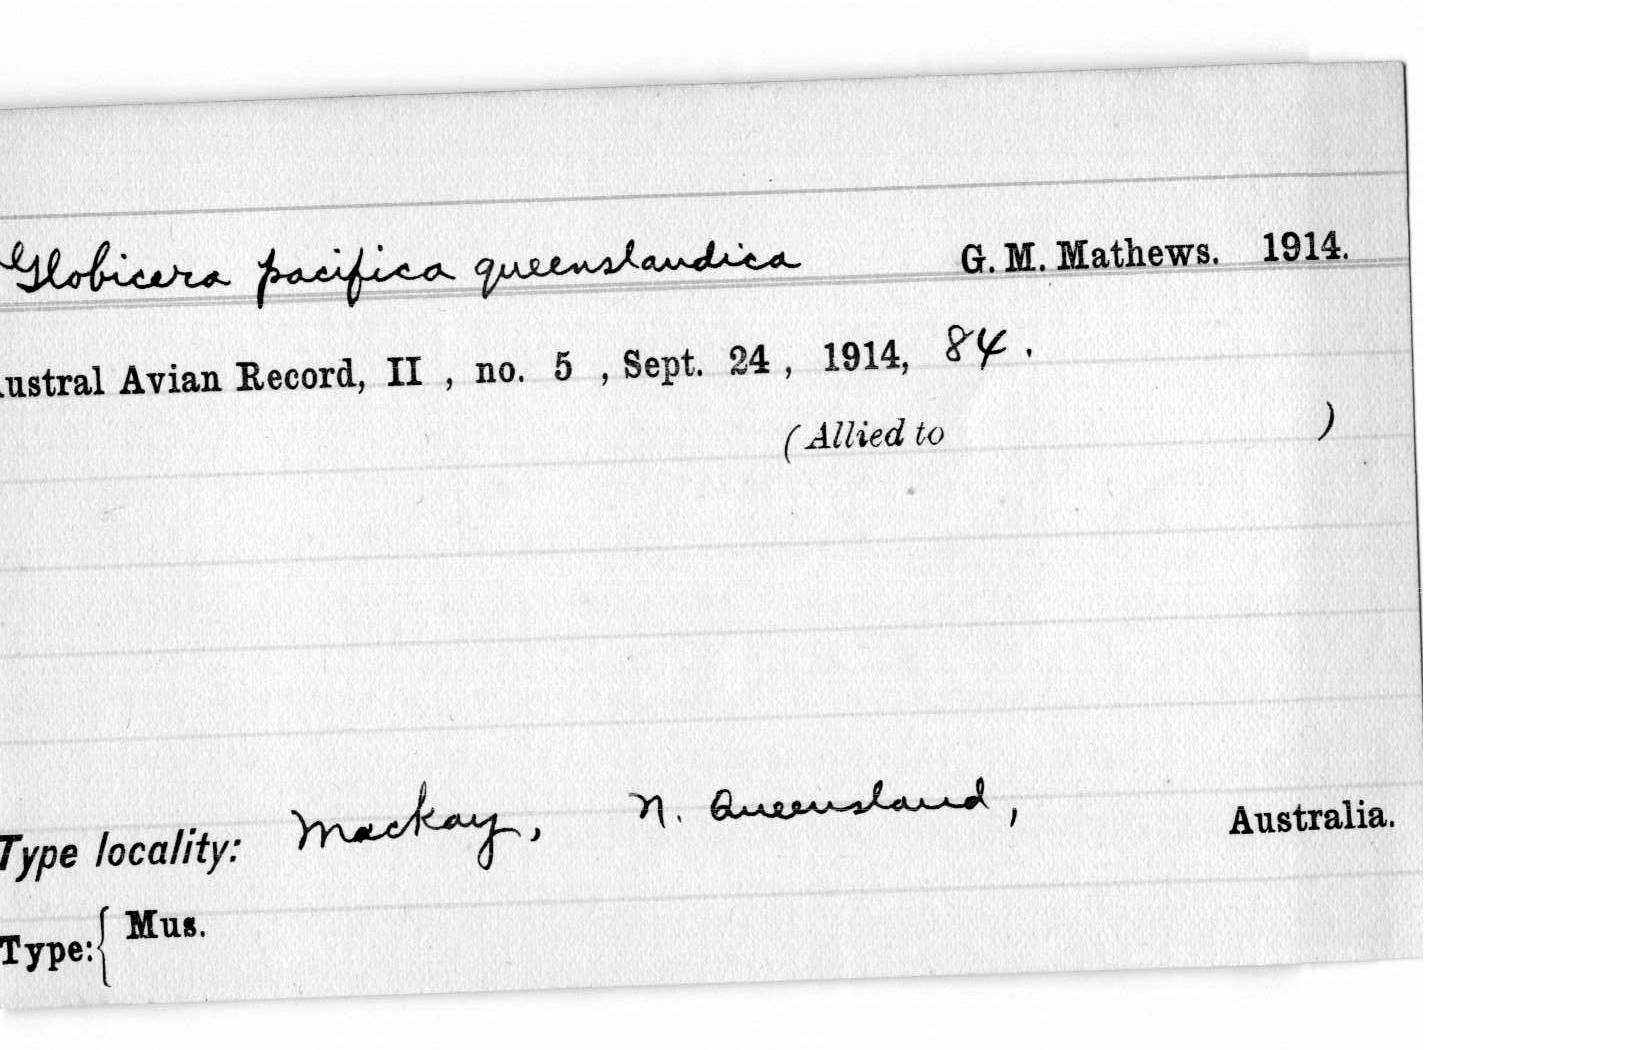 Globicera pacifica queenslandica G. M. Mathews. 1914.
ustral Avian Record, II , no. 5 , Sept. 24 , 1914, 84 .
(Allied to )
Type locality: Mackay, N. Queensland, Australia.
Type: { Mus.